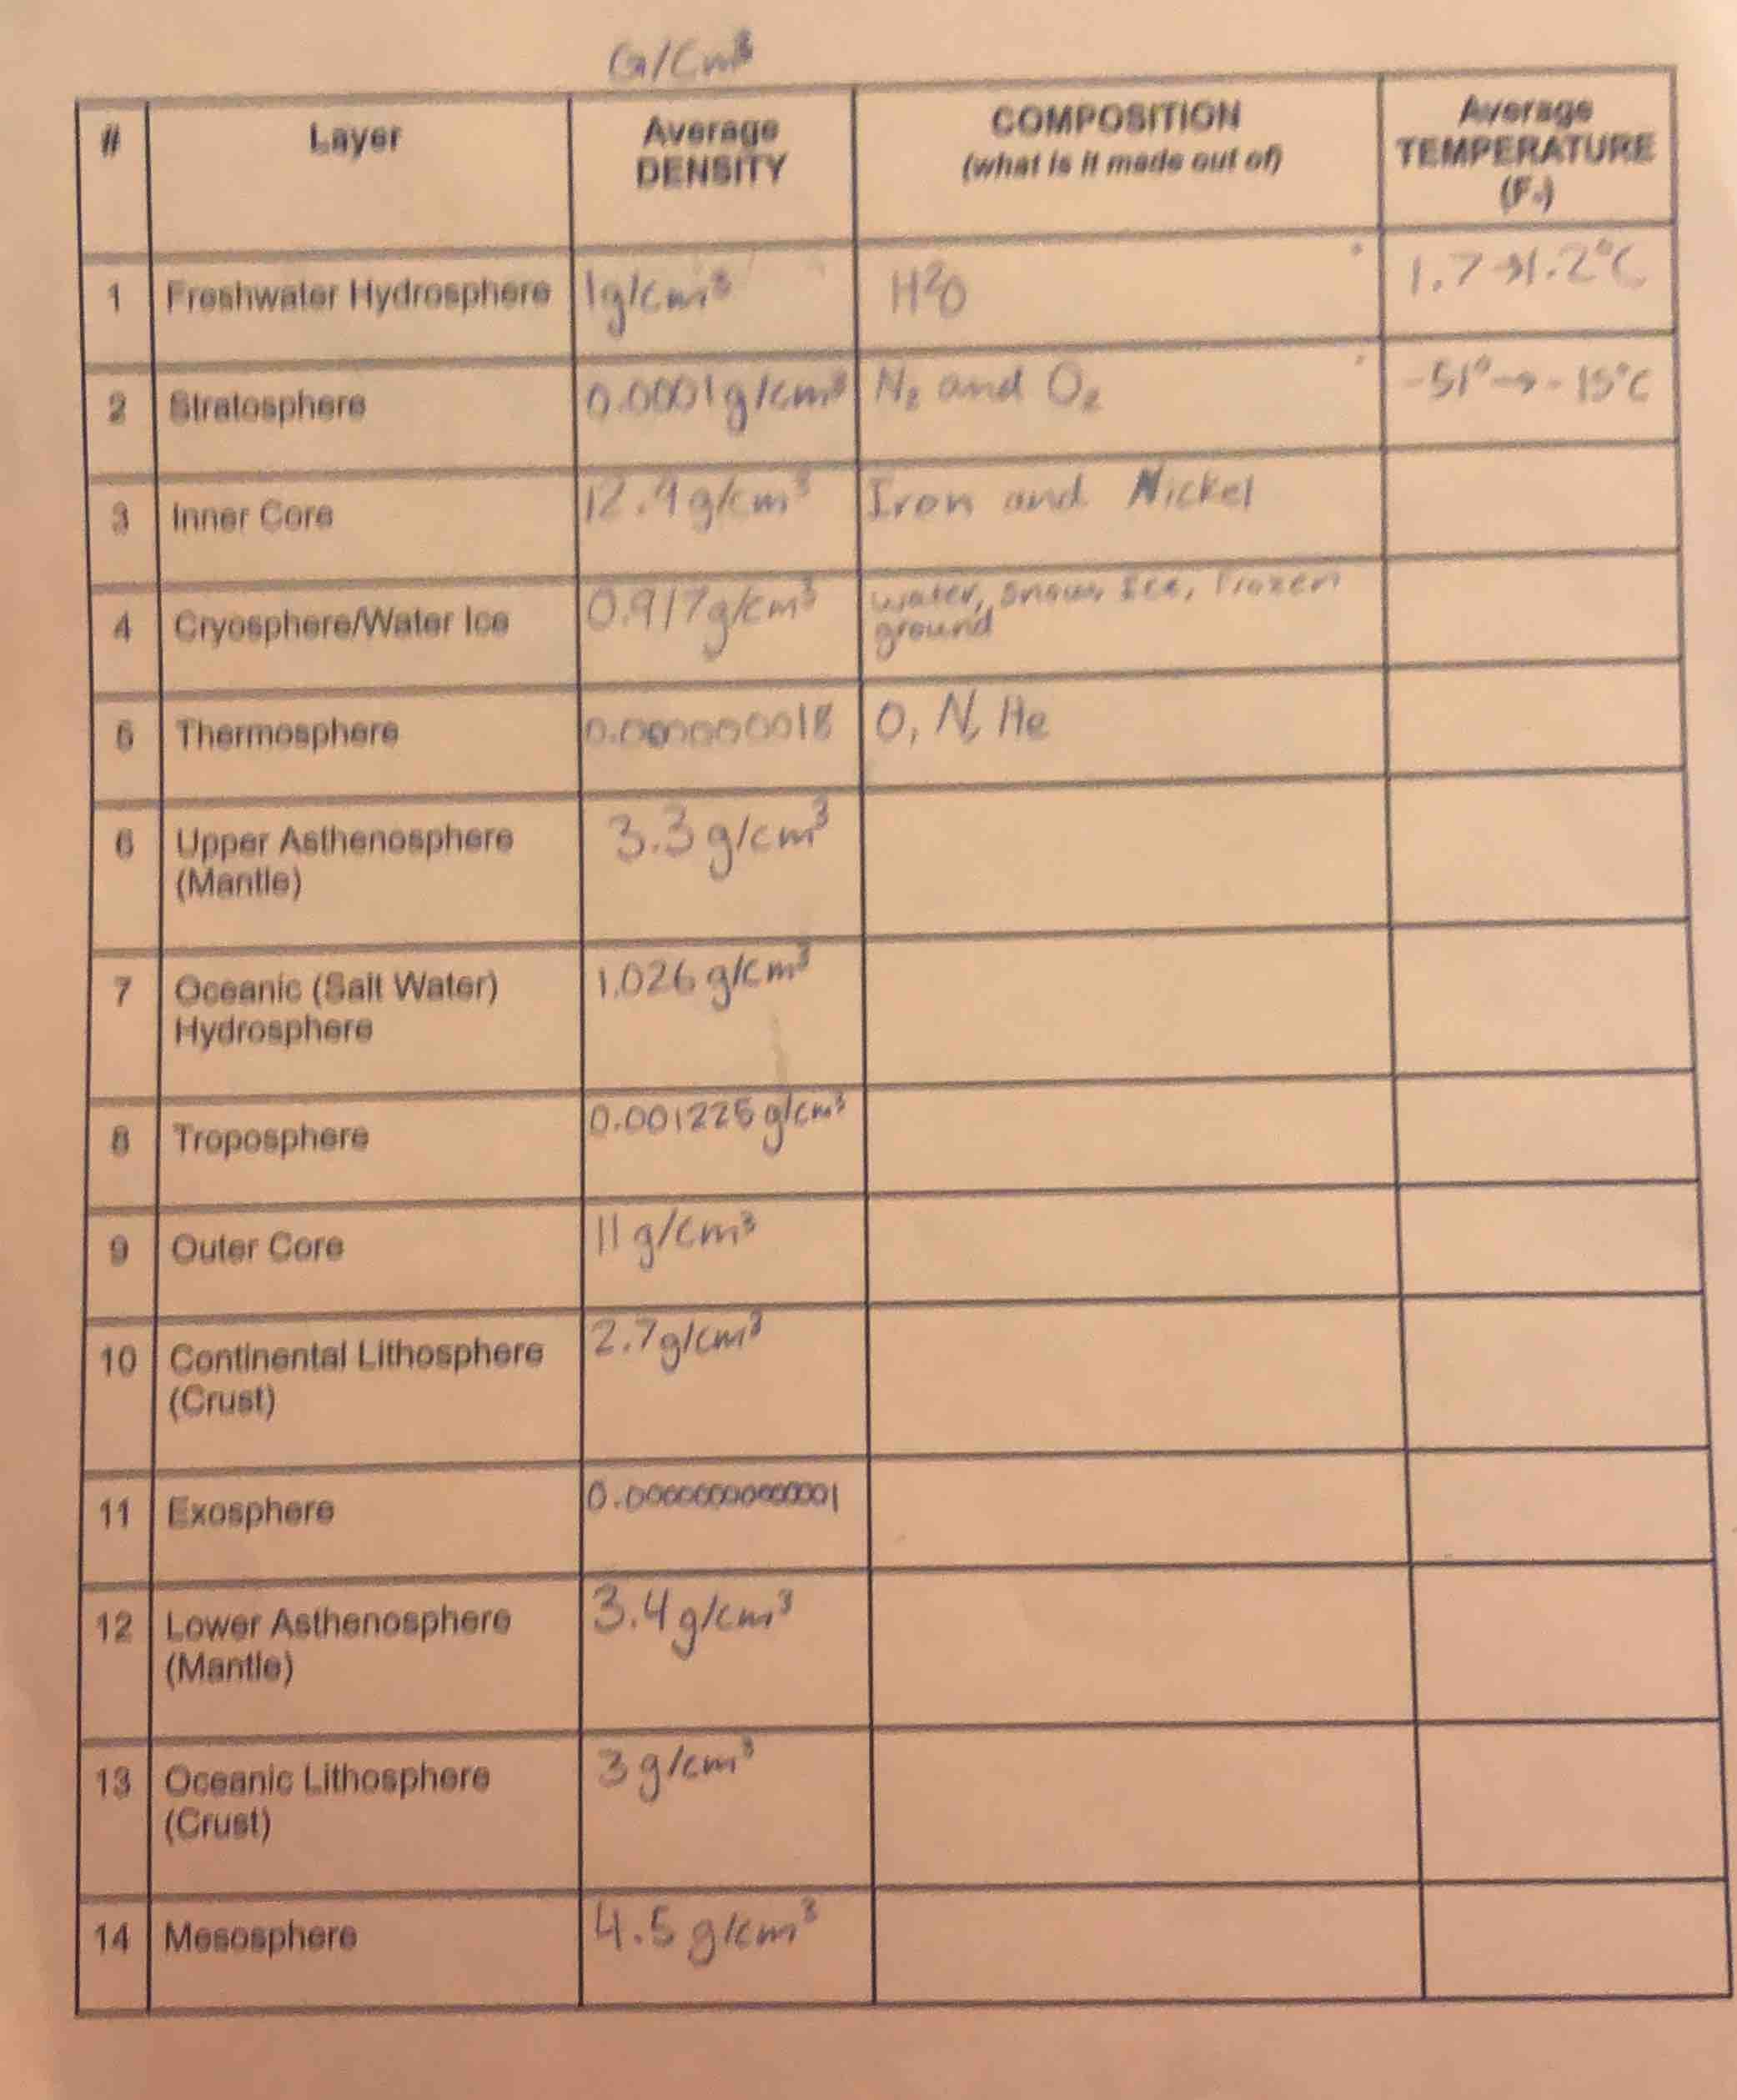 G/Cm³
# Layer Average DENSITY COMPOSITION (what is it made out of) Average TEMPERATURE (F.)
1 Freshwater Hydrosphere 1g/cm³ H²O 1.7→1.2°C
2 Stratosphere 0.0001g/cm³ N₂ and O₂ -51°→-15°C
3 Inner Core 12.9g/cm³ Iron and Nickel
4 Cryosphere/Water Ice 0.917g/cm³ water, snow, Ice, Frozen
ground
5 Thermosphere O, N, He
6 Upper Asthenosphere 3.3g/cm³
(Mantle)
7 Oceanic (Salt Water) 1.026g/cm³
Hydrosphere
8 Troposphere 0.001225g/cm³
9 Outer Core 11g/cm³
10 Continental Lithosphere 2.7g/cm³
(Crust)
11 Exosphere
12 Lower Asthenosphere 3.4g/cm³
(Mantle)
13 Oceanic Lithosphere 3g/cm³
(Crust)
14 Mesosphere 4.5g/cm³